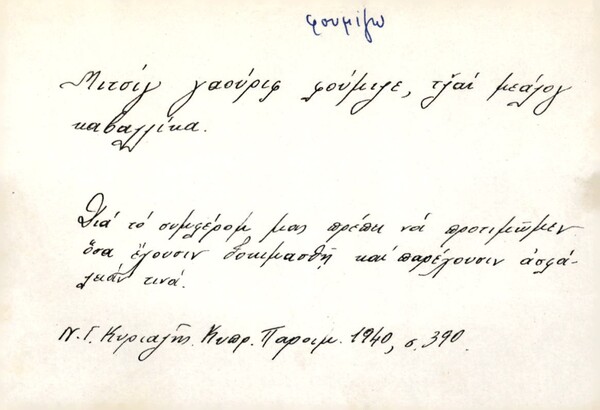 φουμίζω
Μιτσὶγ γαούριφ φούμιζε, τζ̌αί μεάλογ
καβαλλίκα.
Διά τό συμφέρομ μας πρέπει νά προτιμῶμεν
ὅσα ἔχουσιν δοκιμασθῆ καί παρέχουσιν ἀσφά-
λειάν τινά.
Ν. Γ. Κυριαζῆς. Κυπρ. Παροιμ. 1940, σ. 390.